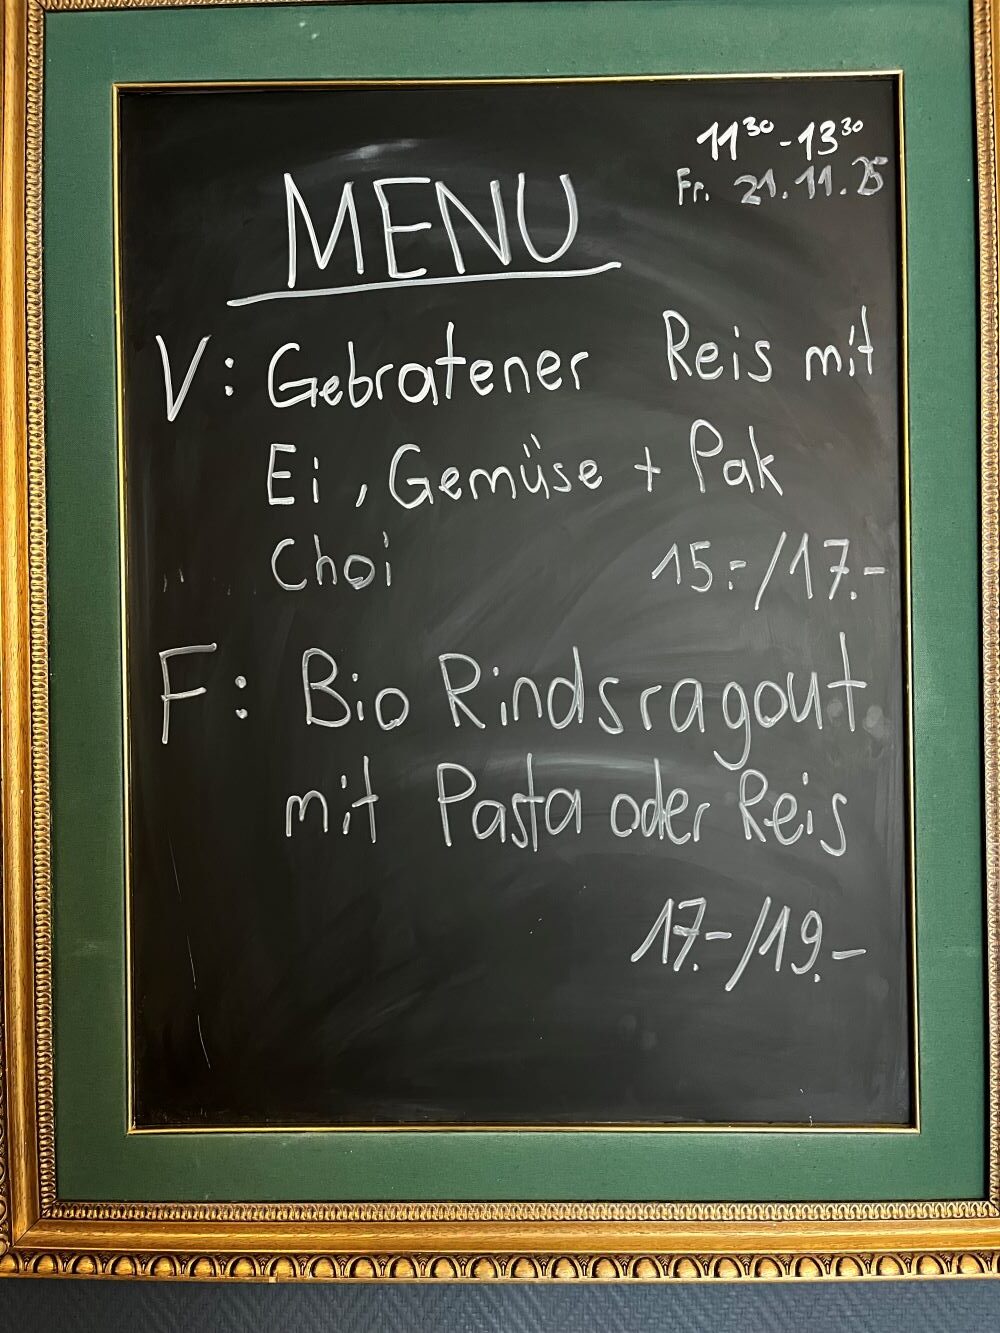 11³⁰ - 13³⁰
Fr. 21.11.25
MENU
V: Gebratener Reis mit
Ei, Gemüse + Pak
Choi 15.-/17.-
F: Bio Rindsragout
mit Pasta oder Reis
17.-/19.-